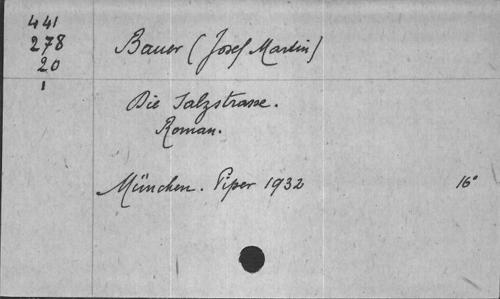 441
278
20
1
Bauer (Josef Martin)
Die Salzstrasse.
Roman.
München. Piper 1932 16°